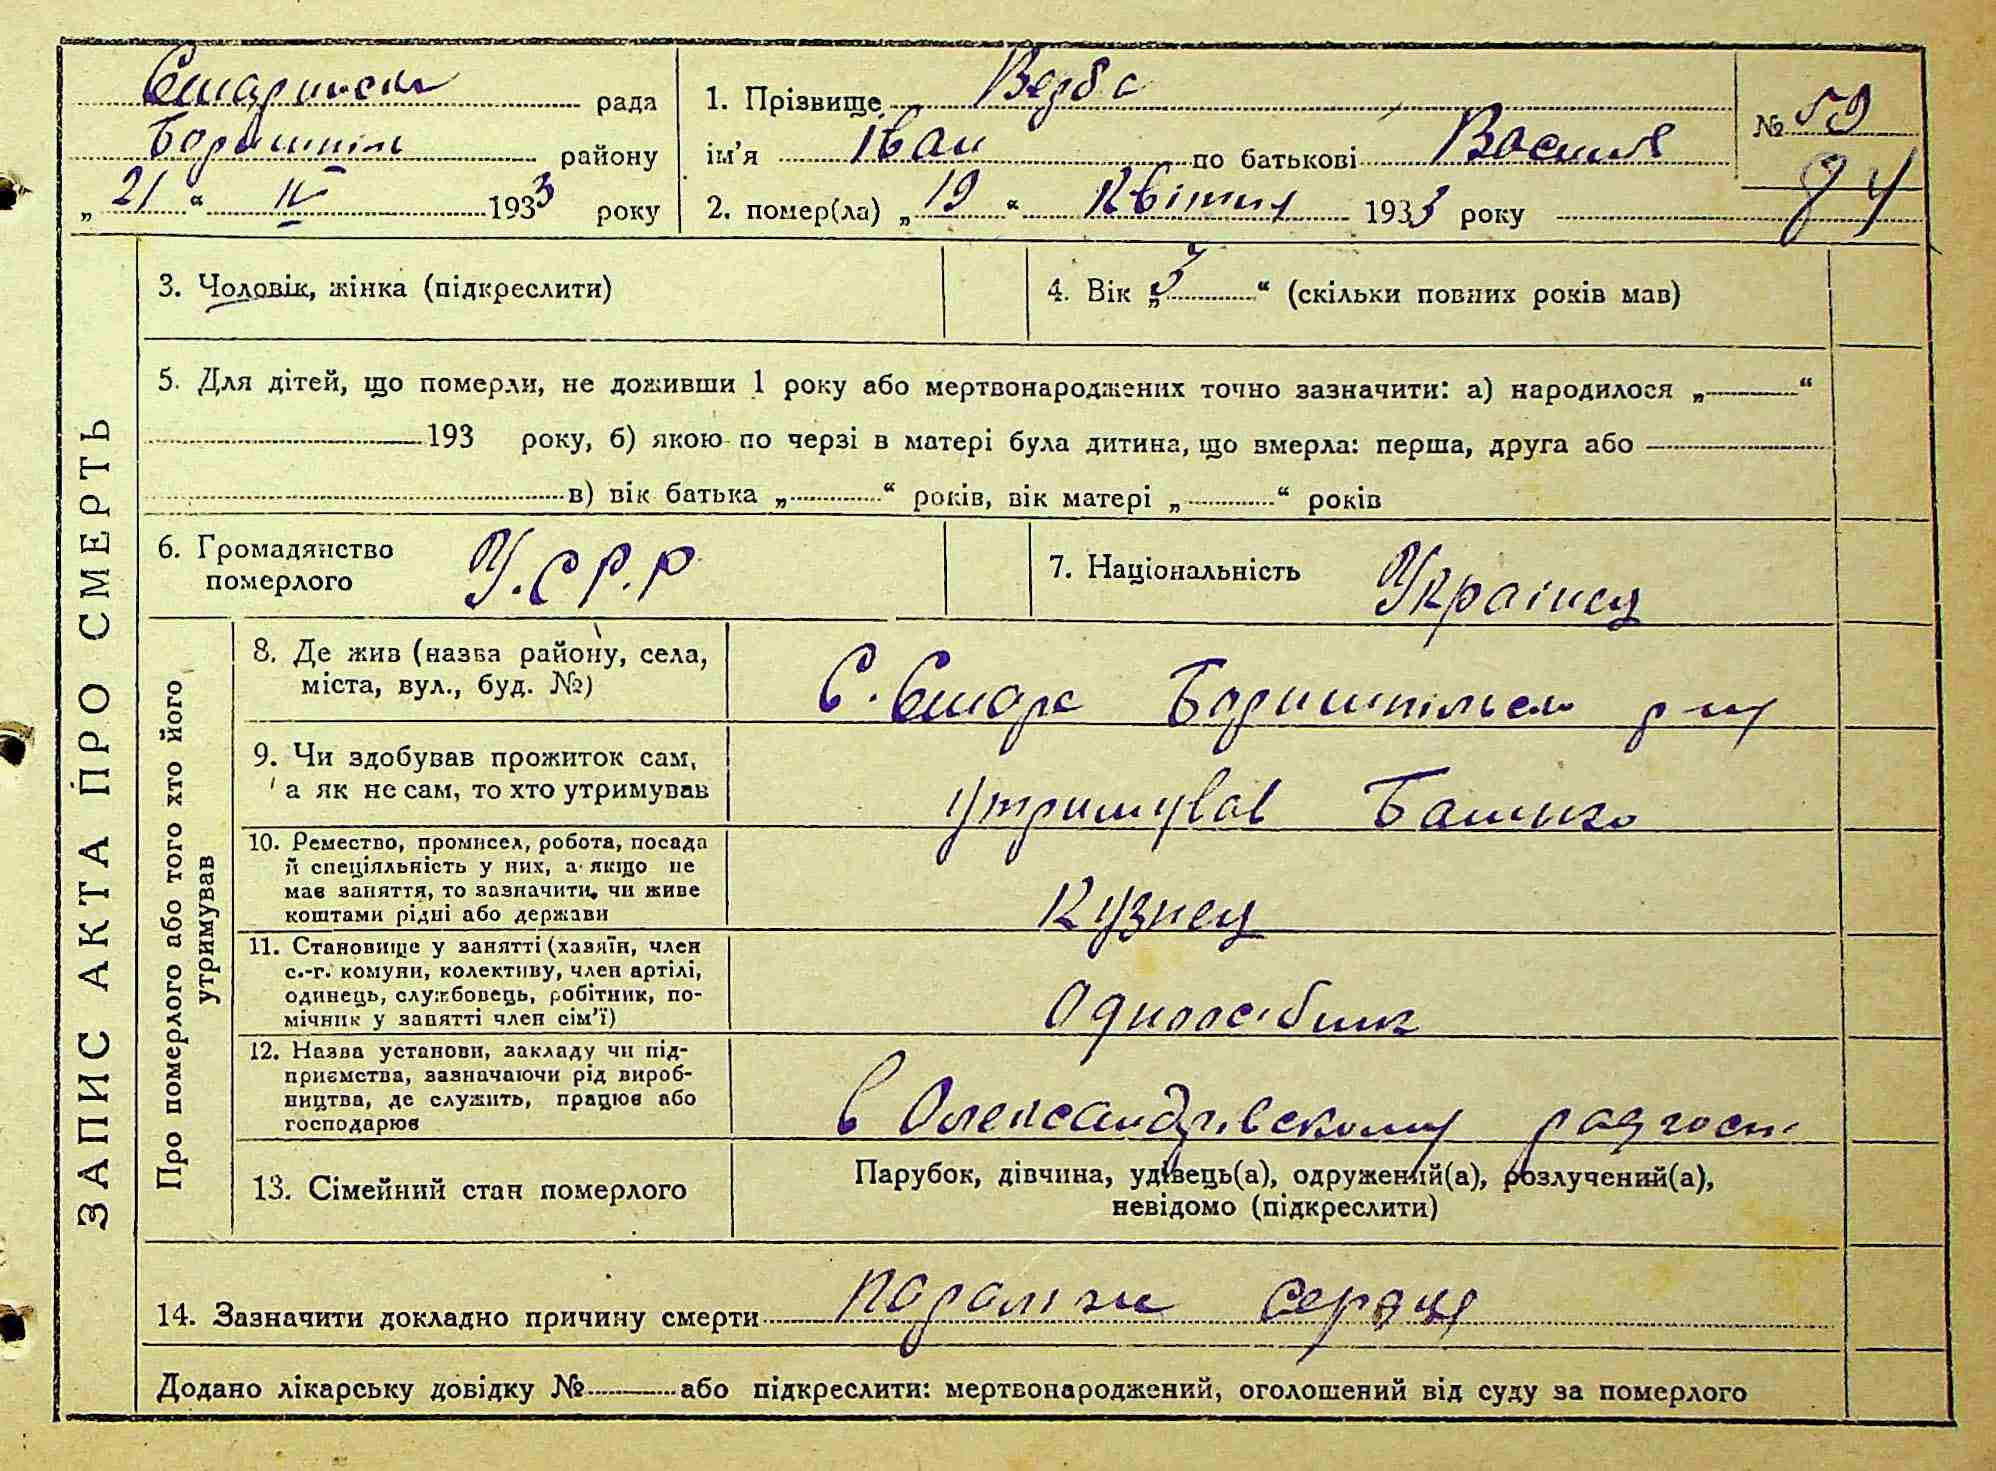 Старинська рада
Бориспіль району
„ 21 “ IV 1933 року
1. Прізвище Верба
ім’я Іван по батькові Василь
2. помер(ла) „ 19 “ Квітня 1933 року
№ 59
94
3. Чоловік, жінка (підкреслити)
4. Вік „ 3 “ (скільки повних років мав)
5. Для дітей, що померли, не доживши 1 року або мертвонароджених точно зазначити: а) народилося „ “
193 року, б) якою по черзі в матері була дитина, що вмерла: перша, друга або
в) вік батька „ “ років, вік матері „ “ років
6. Громадянство
померлого
У.СР.Р
7. Національність Українец
ЗАПИС АКТА ПРО СМЕРТЬ
Про померлого або того хто його
утримував
8. Де жив (назва району, села,
міста, вул., буд. №)
С. Стара Боришпільськ р-ну
9. Чи здобував прожиток сам,
а як не сам, то хто утримував
утримував Батько
10. Ремество, промисел, робота, посада
й спеціяльність у них, а якщо не
має заняття, то зазначити, чи живе
коштами рідні або держави
Кузнец
11. Становище у занятті (хазяїн, член
с.-г. комуни, колективу, член артілі,
одинець, службовець, робітник, по-
мічник у занятті член сім’ї)
Одноосібник
12. Назва установи, закладу чи під-
приємства, зазначаючи рід вироб-
ництва, де служить, працює або
господарює
в Олександрівскому радгосп
13. Сімейний стан померлого
Парубок, дівчина, удівець(а), одружений(а), розлучений(а),
невідомо (підкреслити)
14. Зазначити докладно причину смерти параліж сердця
Додано лікарську довідку № або підкреслити: мертвонароджений, оголошений від суду за померлого